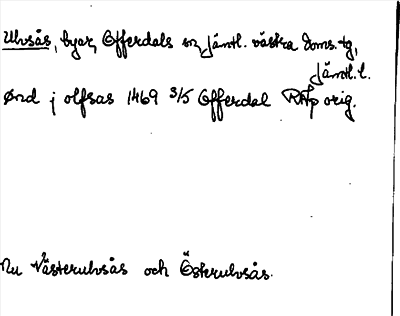 Ulvsås, byar, Offerdals sn, Jämtl. västra doms.-tg,
Jämtl. l.
Ønd j olfsas 1469 3/5 Offerdal RAp orig.
Nu Västerulvsås och Österulvsås.